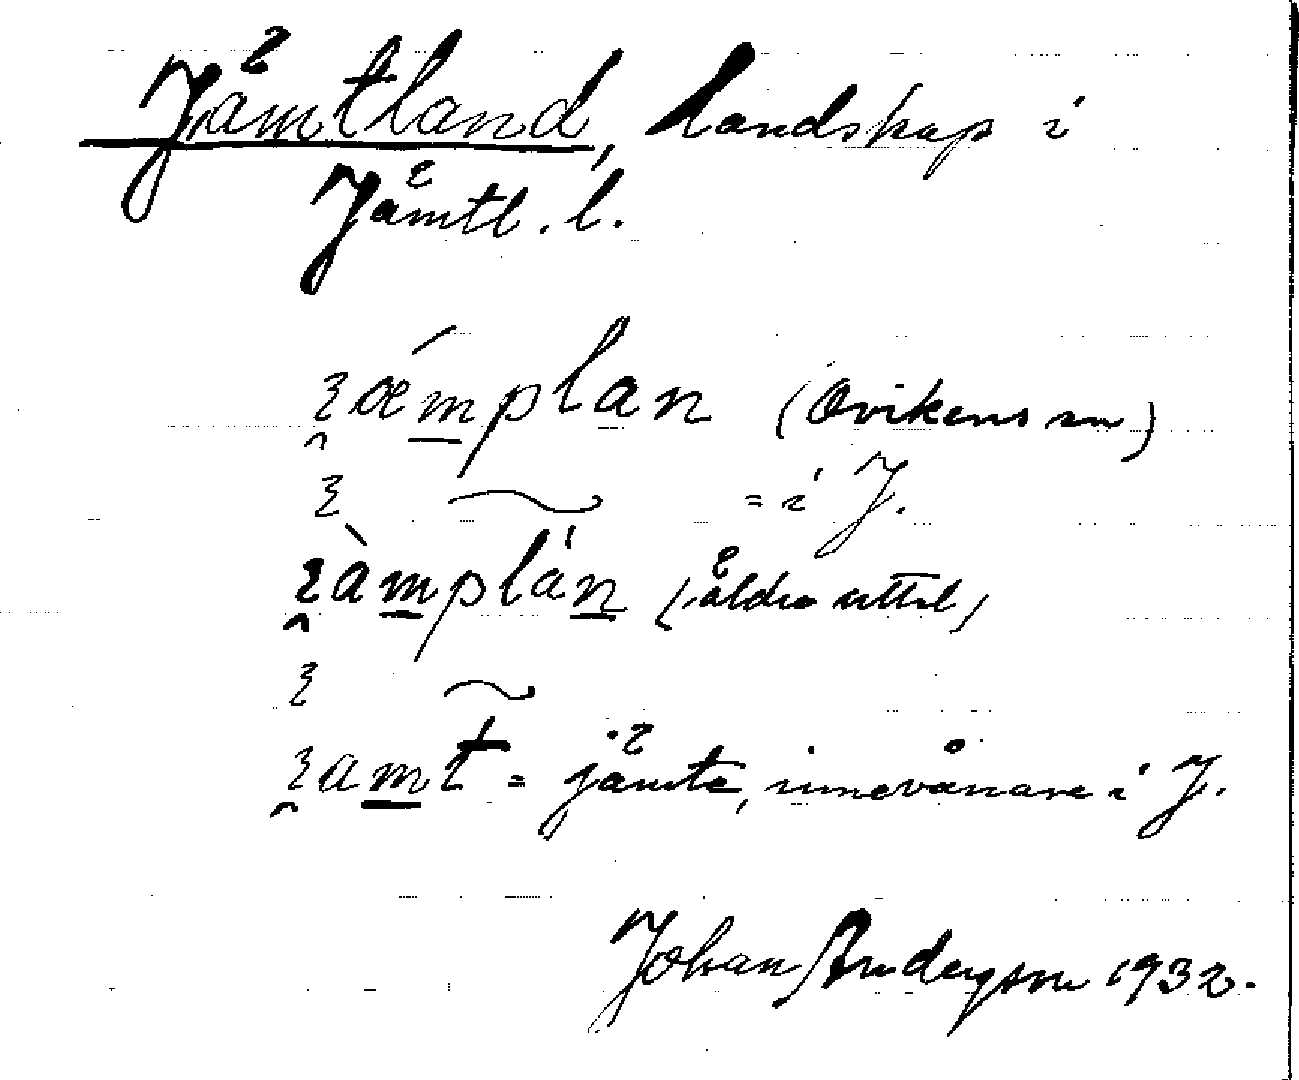 Jämtland, landskap i
Jämtl. l.
ʒǽmplan (Ovikens sn)
ʒ ~ = i J.
ʒàmplán (äldre uttal)
ʒ ~
ʒamt = jämte, innevånare i J.
Johan Anderson 1932.